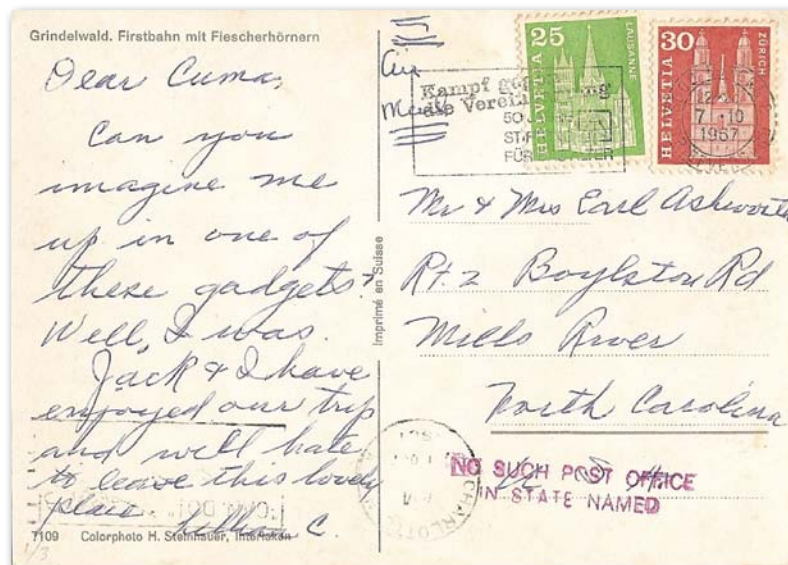 Grindelwald. Firstbahn mit Fiescherhörnern
Dear Cuma,
Can you
imagine me
up in one of
these gadgets?
Well, I was.
Jack & I have
enjoyed our trip
and will hate
to leave this lovely
place. Lillian C.
7109 Colorphoto H. Steinhauer, Interlaken
1/3
Imprimé en Suisse
Air
Mail
25
HELVETIA
LAUSANNE
30
HELVETIA
ZÜRICH
Kampf
die
50
ST
FÜR
7 10
1967
Mr & Mrs Earl Ashworth
Rt. 2 Boylston Rd
Mills River
North Carolina
U S A
NO SUCH POST OFFICE
IN STATE NAMED
CHARLOTTE